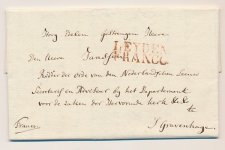 Hoog Edelen Gestrengen Heere
Den Heere Jandf
LEYDEN
FRANCO
Ridder der orde van den Nederlandschen Leeuw
Secretaris en Adviseur bij het Departement
voor de zaken der Hervormde kerk &c &c
te
Franco
S'Gravenhage